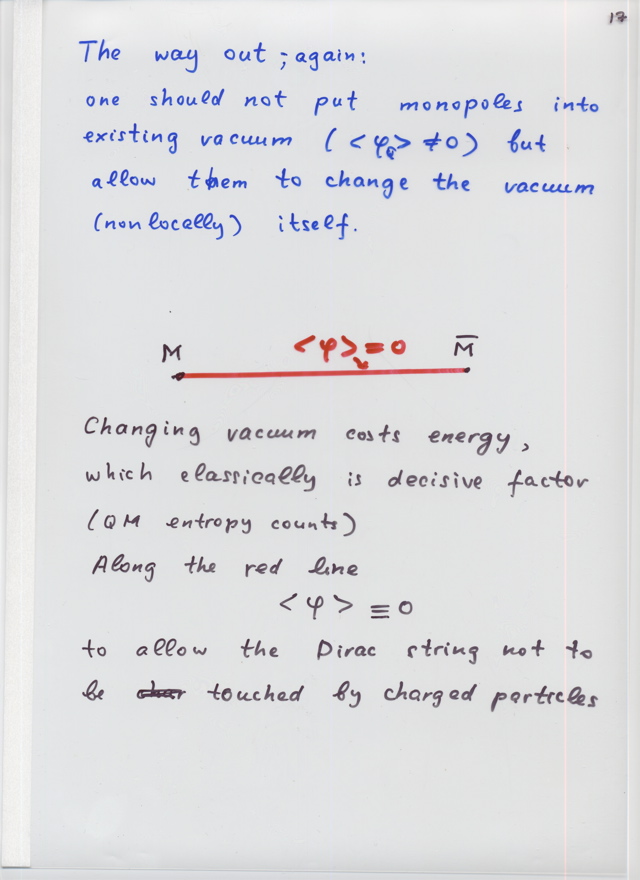 17
The way out; again:
one should not put monopoles into
existing vacuum (<φ_Q> ≠ 0) but
allow them to change the vacuum
(nonlocally) itself.
<φ> = 0
M M̅
Changing vacuum costs energy,
which classically is decisive factor
(QM entropy counts)
Along the red line
<φ> ≡ 0
to allow the Dirac string not to
be touched by charged particles